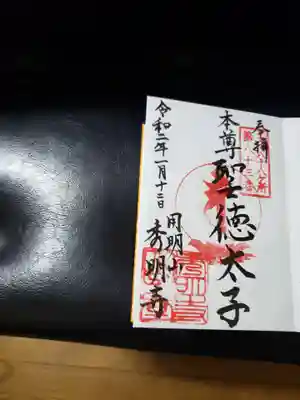 奉拝
本尊聖徳太子
用明山
秀明寺
令和二年一月十二日